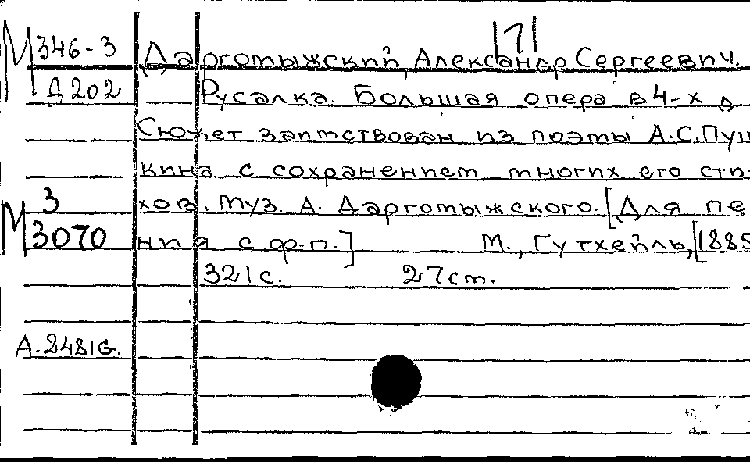 171
М 346-3 Даргомыжский, Александр Сергеевич.
Д202 Русалка. Большая опера в 4-х д
Сюжет заимствован из поэмы А.С.Пуш
кина с сохранением многих его сти-
М 3 хов. Муз. А. Даргомыжского. [Для пе
3070 ния с ф-п.] М., Гутхейль, [1885
321с. 27см.
А.2481G.